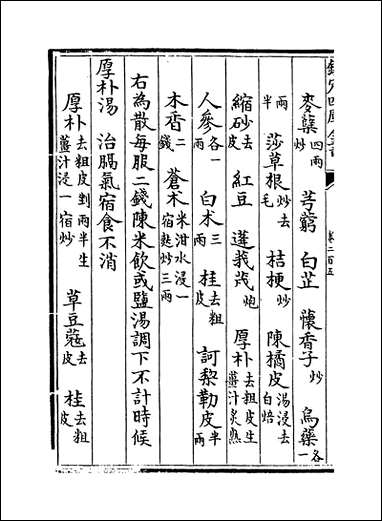 欽定四庫全書
卷二百五
麥蘖四兩炒 芎藭 白芷 懷香子炒 烏藥各一
兩半 莎草根炒去毛 桔梗炒 陳橘皮湯浸去白焙
縮砂去皮 紅豆 蓬莪茂炮 厚朴去粗皮生薑汁炙熟
人參各一兩 白朮三兩 桂去粗皮 訶黎勒皮半兩
木香二錢 蒼朮米泔水浸一宿麩炒三兩
右為散每服二錢陳米飲或鹽湯調下不計時候
厚朴湯 治膈氣宿食不消
厚朴去粗皮剉兩半生薑汁浸一宿炒 草豆蔻去皮 桂去粗皮